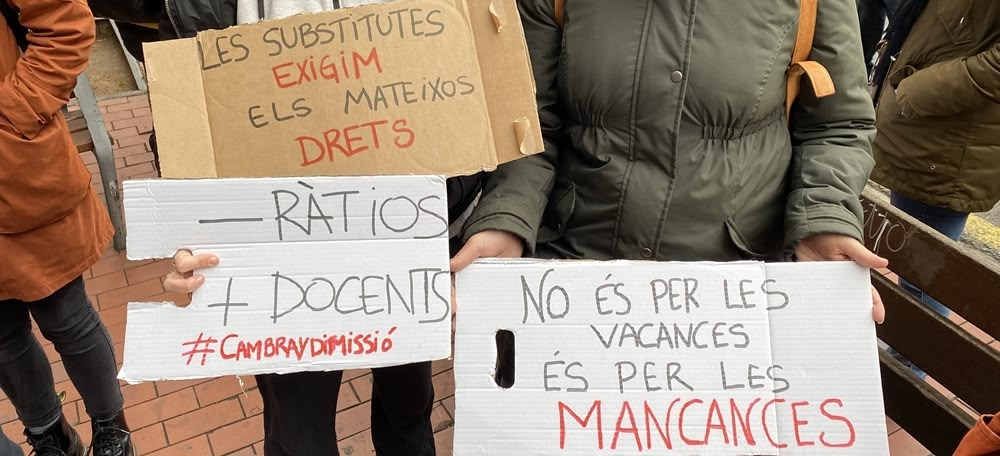 LES SUBSTITUTES
EXIGIM
ELS MATEIXOS
DRETS
— RÀTIOS
+ DOCENTS
#CAMBRAYDIMISSIÓ
NO ÉS PER LES
VACANCES
ÉS PER LES
MANCANCES